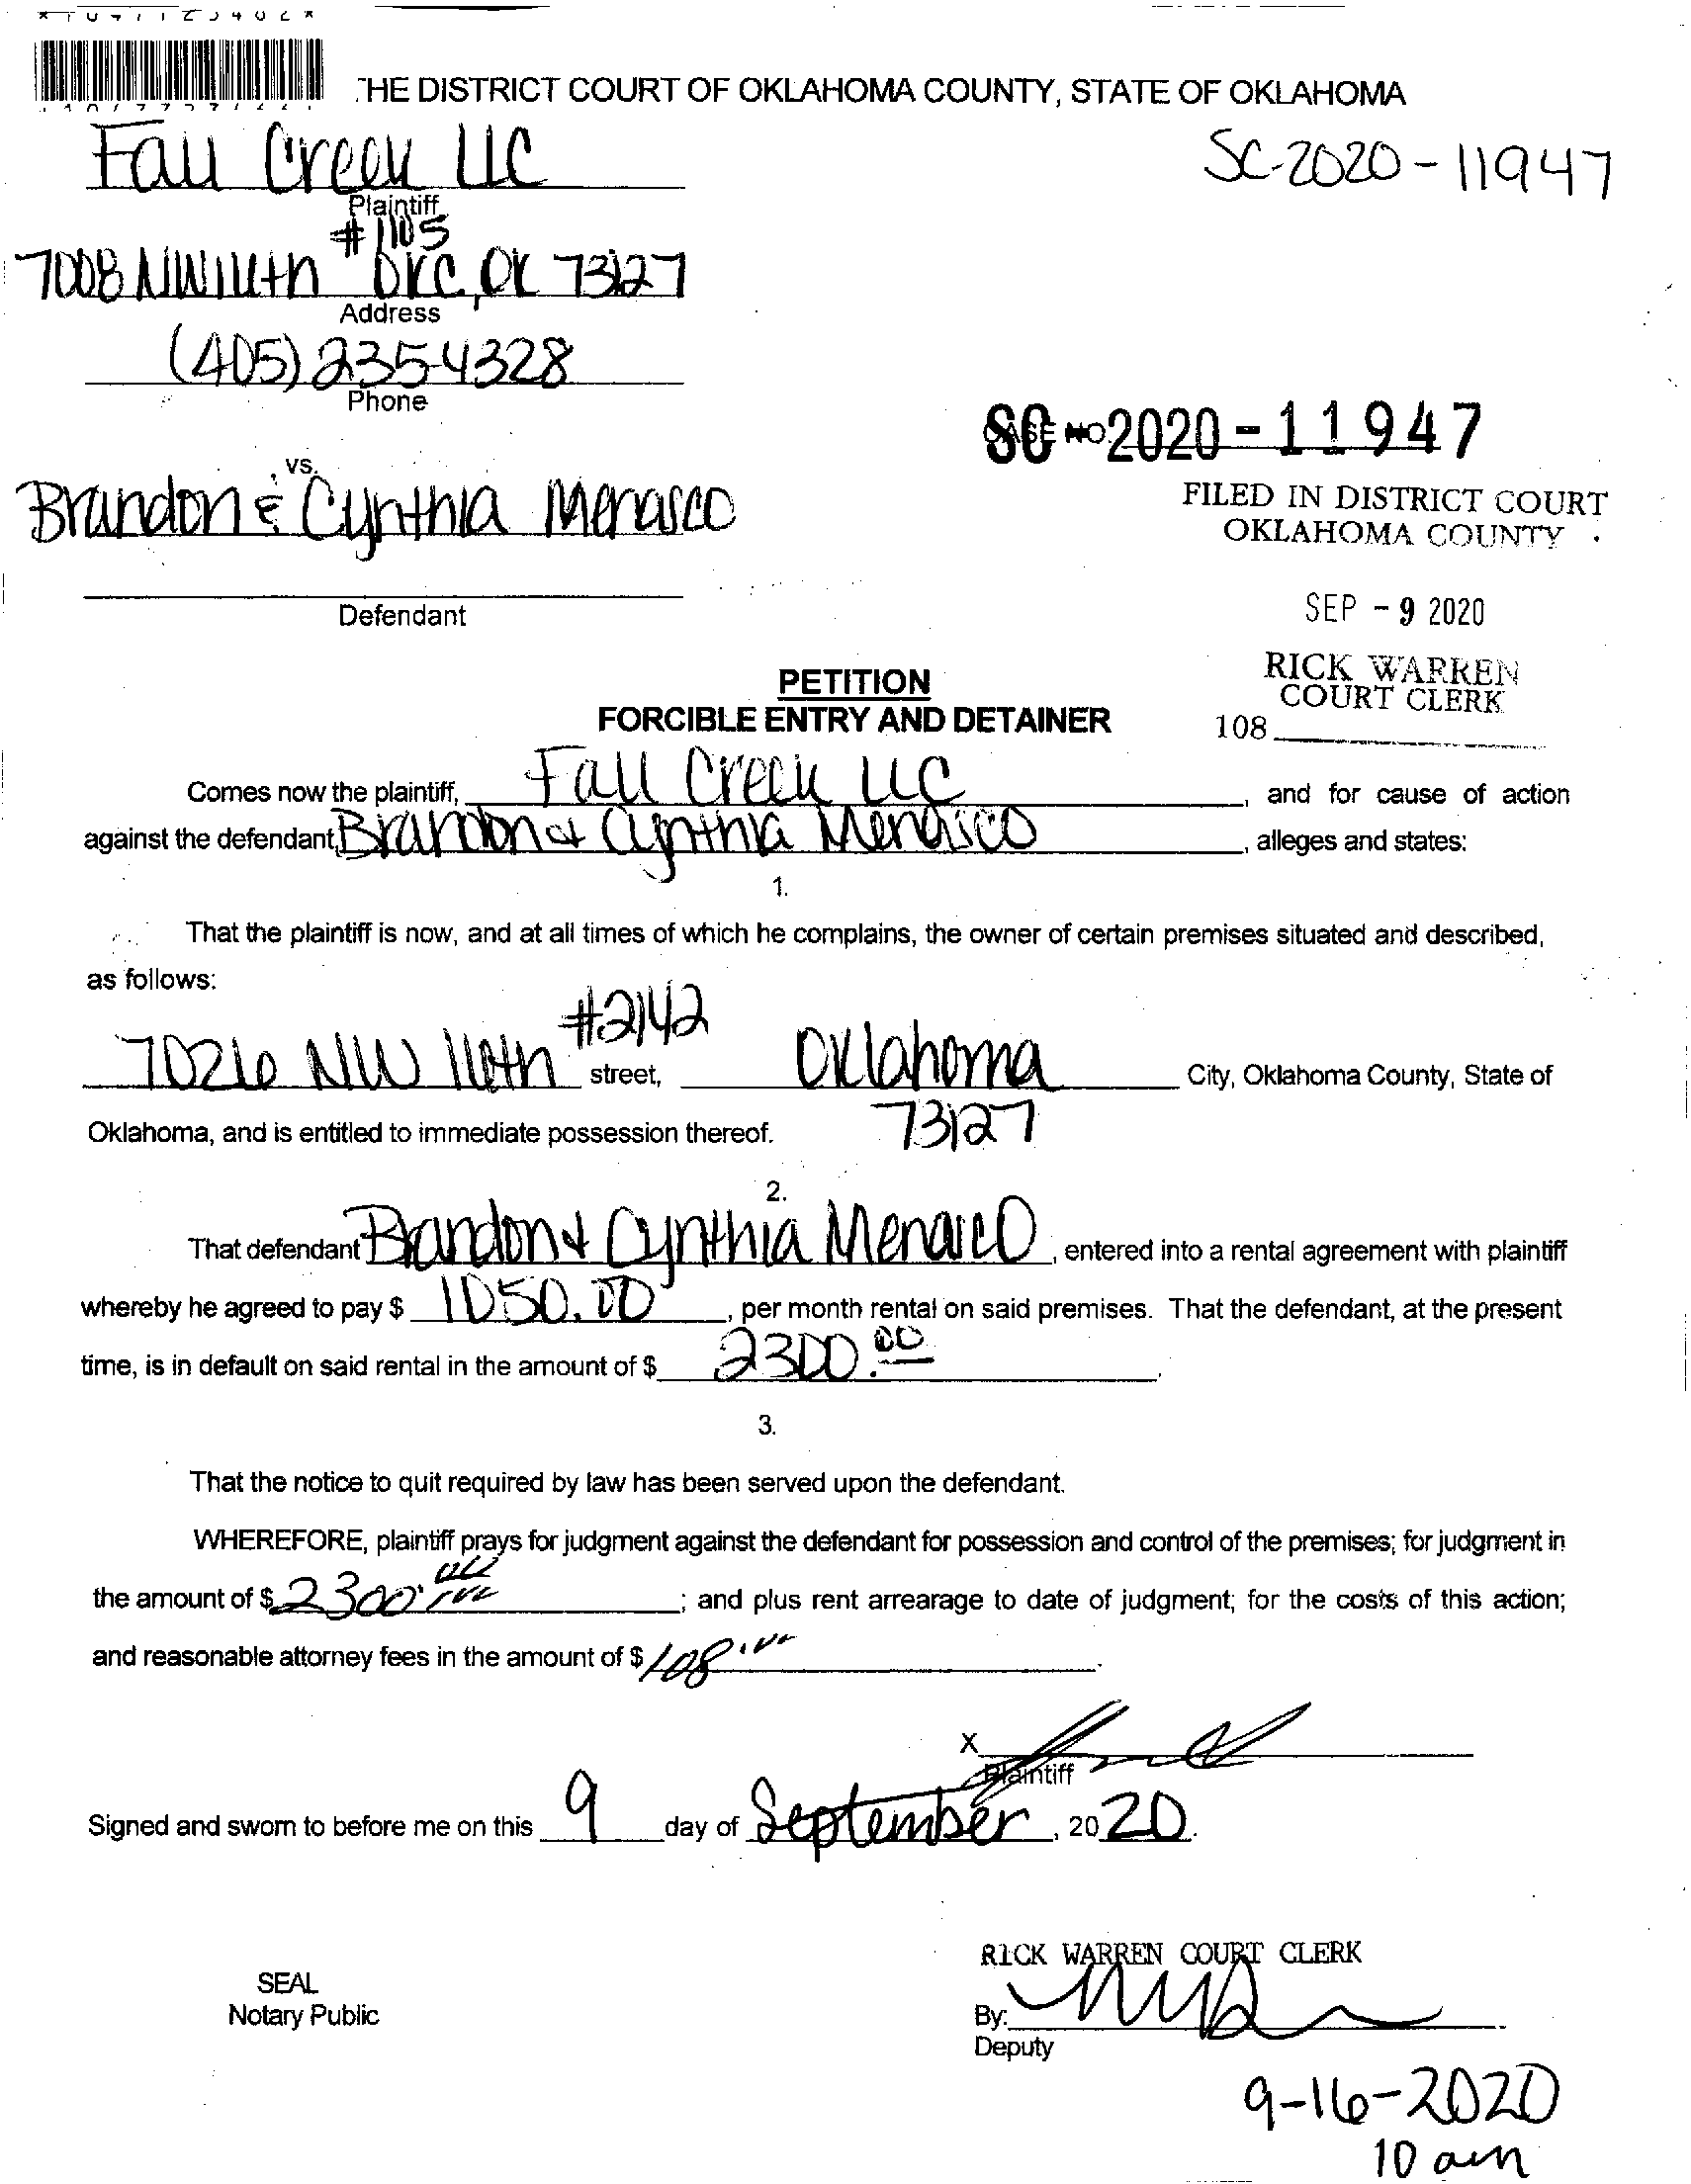 THE DISTRICT COURT OF OKLAHOMA COUNTY, STATE OF OKLAHOMA
Fall Creek LLC
SC-2020-11947
Plaintiff
#1105
7008 NW 16th OKC, OK 73127
Address
(405) 235-4328
Phone
SC-2020-11947
CASE NO.
vs.
Brandon & Cynthia Menasco
FILED IN DISTRICT COURT
OKLAHOMA COUNTY
Defendant
SEP - 9 2020
RICK WARREN
COURT CLERK
108
PETITION
FORCIBLE ENTRY AND DETAINER
Comes now the plaintiff, Fall Creek LLC, and for cause of action
against the defendant, Brandon & Cynthia Menasco, alleges and states:
1.
That the plaintiff is now, and at all times of which he complains, the owner of certain premises situated and described,
as follows:
7026 NW 16th #2142 street, Oklahoma City, Oklahoma County, State of
Oklahoma, and is entitled to immediate possession thereof. 73127
2.
That defendant Brandon & Cynthia Menasco, entered into a rental agreement with plaintiff
whereby he agreed to pay $ 1050.00, per month rental on said premises. That the defendant, at the present
time, is in default on said rental in the amount of $ 2300.00.
3.
That the notice to quit required by law has been served upon the defendant.
WHEREFORE, plaintiff prays for judgment against the defendant for possession and control of the premises; for judgment in
the amount of $ 2300; and plus rent arrearage to date of judgment; for the costs of this action;
and reasonable attorney fees in the amount of $ 108.
X
Plaintiff
Signed and sworn to before me on this 9 day of September, 2020.
RICK WARREN COURT CLERK
SEAL
Notary Public
By:
Deputy
9-16-2020
10 am